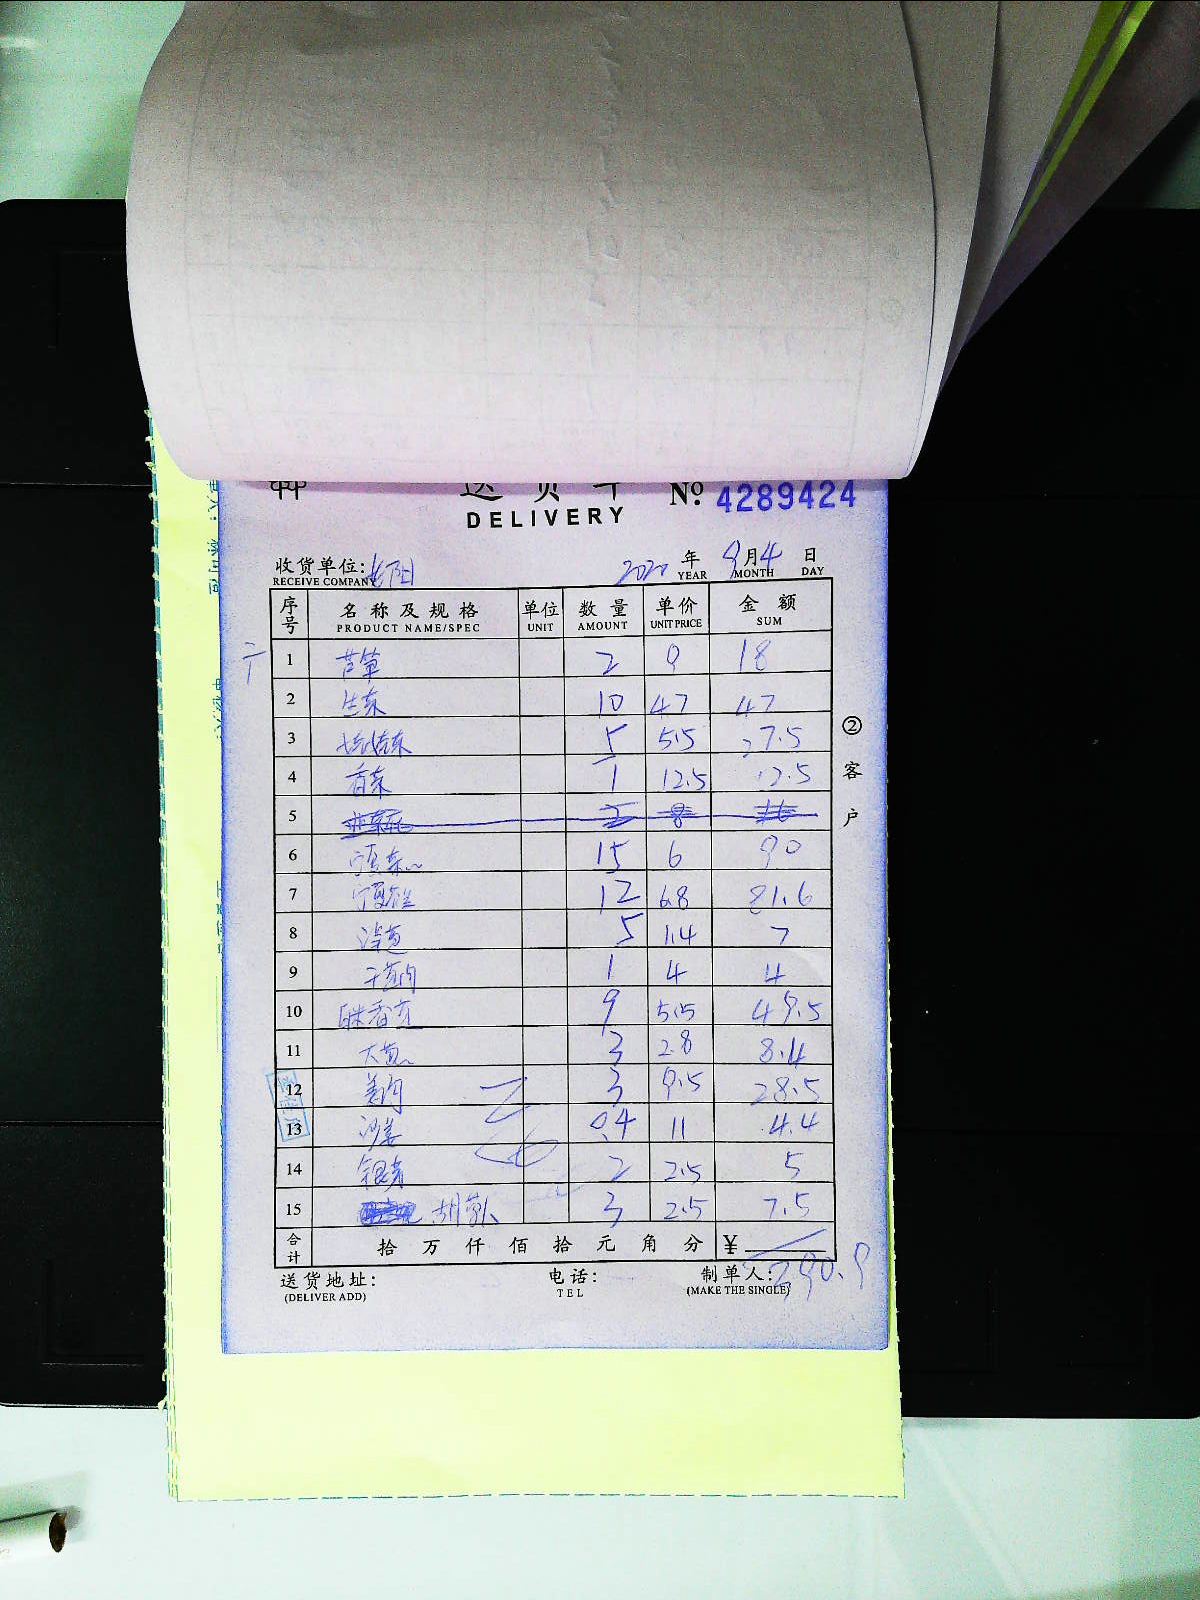 送货单 № 4289424
DELIVERY
收货单位:
RECEIVE COMPANY
2020 年 9 月 4 日
YEAR MONTH DAY
序号 名称及规格 单位 数量 单价 金额
PRODUCT NAME/SPEC UNIT AMOUNT UNIT PRICE SUM
1 芦笋 2 9 18
2 生菜 10 47 47
3 5 5.5 27.5
4 香菜 1 12.5 12.5
5 2 8 16
6 15 6 90
7 12 6.8 81.6
8 5 1.4 7
9 1 4 4
10 9 5.5 49.5
11 3 2.8 8.4
12 姜肉 3 9.5 28.5
13 沙姜 0.4 11 4.4
14 银芽 2 2.5 5
15 3 2.5 7.5
合计 拾 万 仟 佰 拾 元 角 分 ¥
送货地址: 电话: 制单人:
(DELIVER ADD) TEL (MAKE THE SINGLE)
②客户